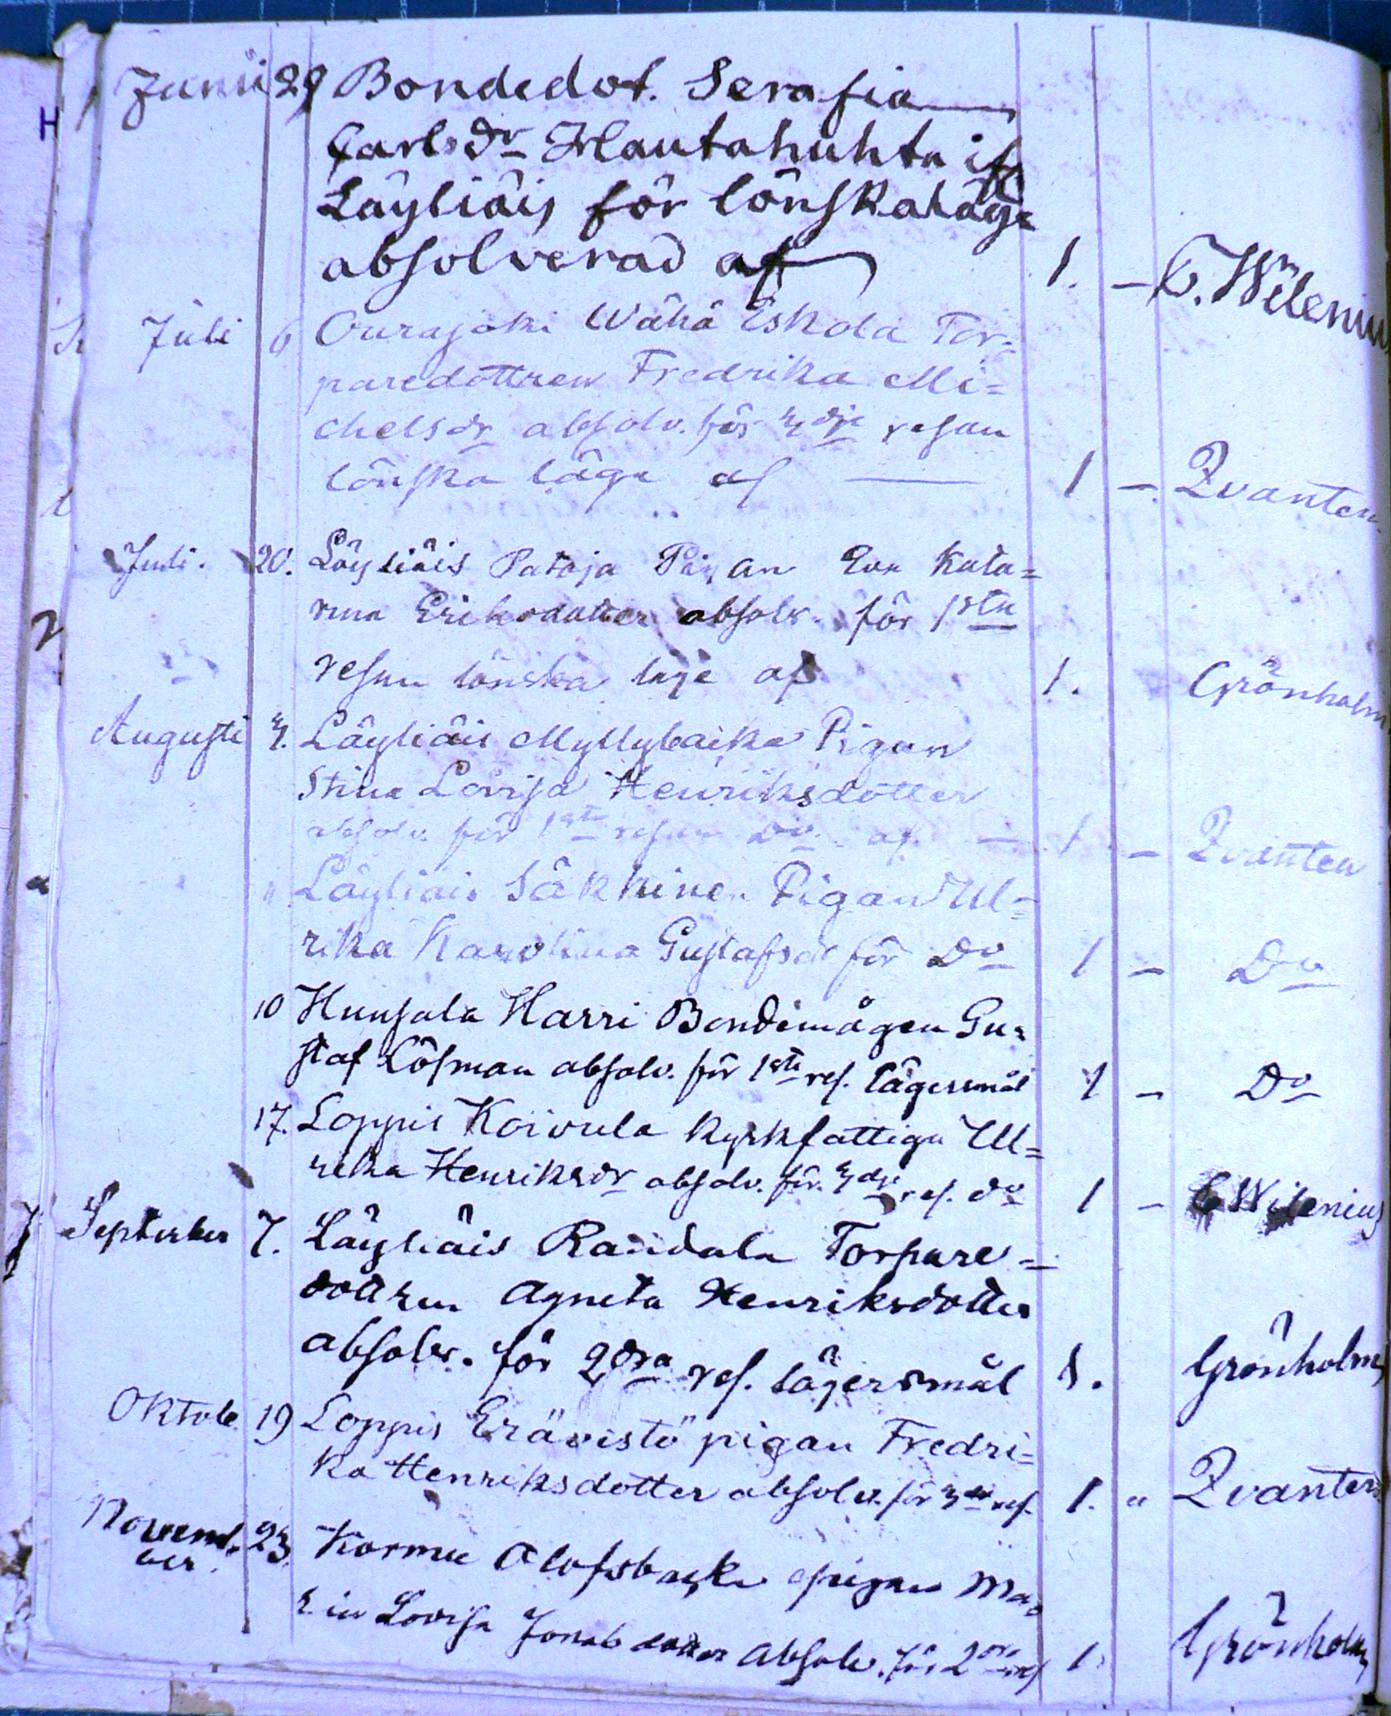 Junii 29 Bondedot. Serafia
Carlsdr Hautahuhta ifr
Läyliäis för lönskaläge
absolverad af 1. — C. Wilenius
Juli 6 Ourajoki Wähä Eskola Tor=
paredottren Fredrika Mi=
chelsdr absolv. för 3dje resan
lönska läge af — 1 — Qvanten
Juli. 20. Läyliäis Pataja Pigan Eva Kata=
rina Eriksdotter absolv. för 1sta
resan lönska läge af 1. Grönholm
Augusti 3. Läyliäis Myllybacka Pigan
Stina Lovisa Henriksdotter
absolv. för 1sta resan Do af — 1 — Qvanten
" Läyliäis Säkkinen Pigan Ul=
rika Karolina Gustafsdr för Do 1 — Do
10 Hunsala Harri Bondemågen Gu=
staf Löfman absolv. för 1sta res. lägersmål 1 — Do
17. Loppis Koivula kyrkfattiga Ul=
rika Henriksdr absolv. för 3dje res. do 1 — C Wilenius
September 7. Läyliäis Raudala Torpare=
dottren Agneta Henriksdotter
absolv. för 2dra res. lägersmål 1. Grönholm
Oktobe 19 Loppis Erävistö pigan Fredri=
ka Henriksdotter absolv. för 3dje res. 1. " Qvanten
Novemb. 23. Kormu Olofsbacka pigan Ma=
ber.
ria Lovisa Jonabdotter Absolv. för 2dra res 1. Grönholm